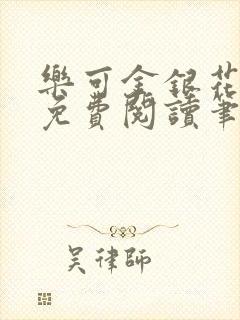 樂可金銀花
免費閱讀筆
吳律師